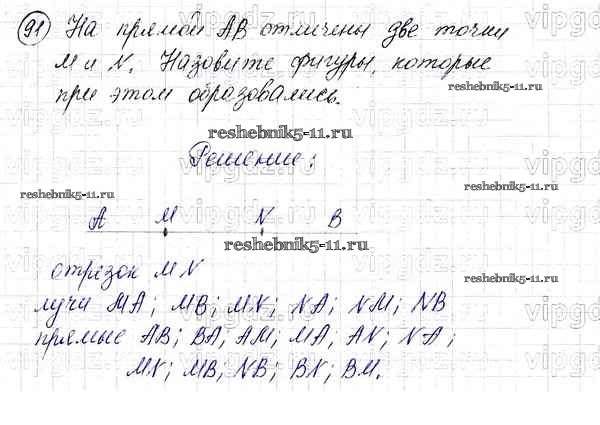 91 На прямой АВ отмечены две точки
М и N. Назовите фигуры, которые
при этом образовались.
reshebnik5-11.ru
reshebnik5-11.ru
Решение:
reshebnik5-11.ru
reshebnik5-11.ru
А М N В
reshebnik5-11.ru
отрезок MN
лучи МА; МВ; MN; NA; NM; NB
прямые АВ; ВА; АМ; МА; AN; NA;
MN; МВ; NB; BN; ВМ.
vipgdz.ru